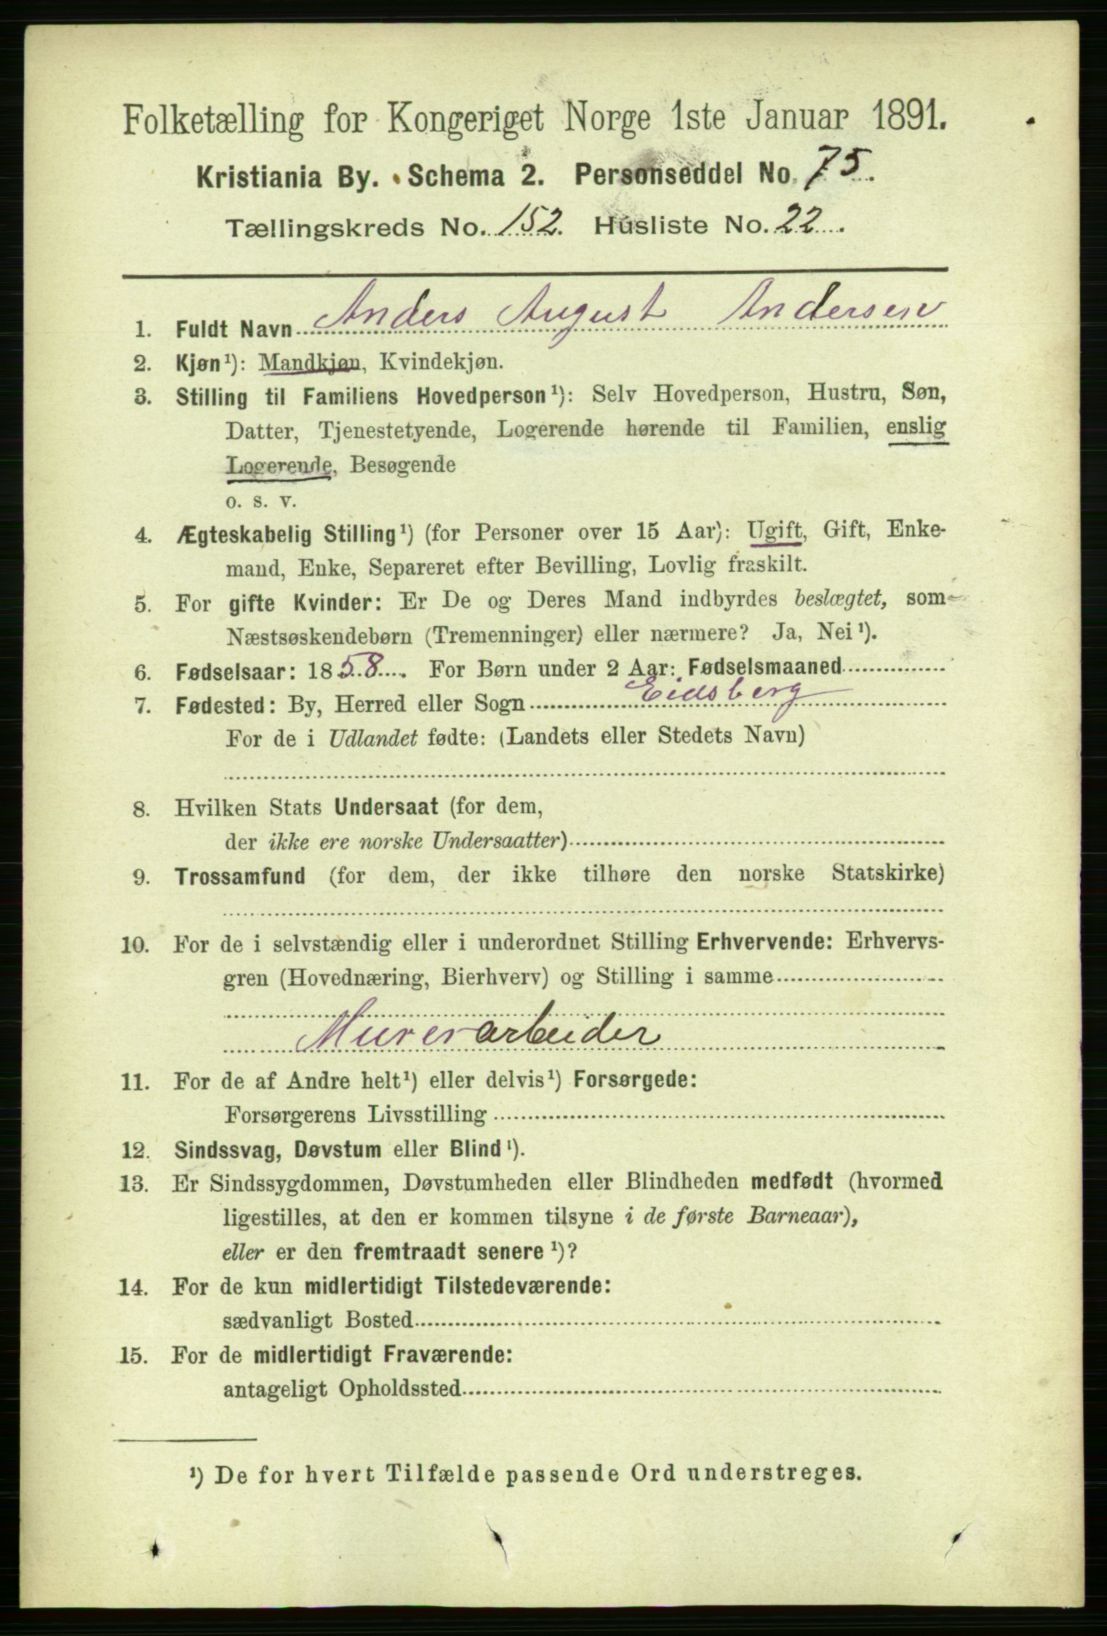 Folketælling for Kongeriget Norge 1ste Januar 1891.
Kristiania By. Schema 2. Personseddel No. 75.
Tællingskreds No. 152. Husliste No. 22.
1. Fuldt Navn Anders August Andersen
2. Kjøn¹): Mandkjøn, Kvindekjøn.
3. Stilling til Familiens Hovedperson¹): Selv Hovedperson, Hustru, Søn,
Datter, Tjenestetyende, Logerende hørende til Familien, enslig
Logerende, Besøgende
o. s. v.
4. Ægteskabelig Stilling¹) (for Personer over 15 Aar): Ugift, Gift, Enke-
mand, Enke, Separeret efter Bevilling, Lovlig fraskilt.
5. For gifte Kvinder: Er De og Deres Mand indbyrdes beslægtet, som
Næstsøskendebørn (Tremenninger) eller nærmere? Ja, Nei¹).
6. Fødselsaar: 1858. For Børn under 2 Aar: Fødselsmaaned
7. Fødested: By, Herred eller Sogn Eidsberg
For de i Udlandet fødte: (Landets eller Stedets Navn)
8. Hvilken Stats Undersaat (for dem,
der ikke ere norske Undersaatter)
9. Trossamfund (for dem, der ikke tilhøre den norske Statskirke)
10. For de i selvstændig eller i underordnet Stilling Erhvervende: Erhvervs-
gren (Hovednæring, Bierhverv) og Stilling i samme
Murerarbeider
11. For de af Andre helt¹) eller delvis¹) Forsørgede:
Forsørgerens Livsstilling
12. Sindssvag, Døvstum eller Blind¹).
13. Er Sindssygdommen, Døvstumheden eller Blindheden medfødt (hvormed
ligestilles, at den er kommen tilsyne i de første Barneaar),
eller er den fremtraadt senere¹)?
14. For de kun midlertidigt Tilstedeværende:
sædvanligt Bosted
15. For de midlertidigt Fraværende:
antageligt Opholdssted
¹) De for hvert Tilfælde passende Ord understreges.